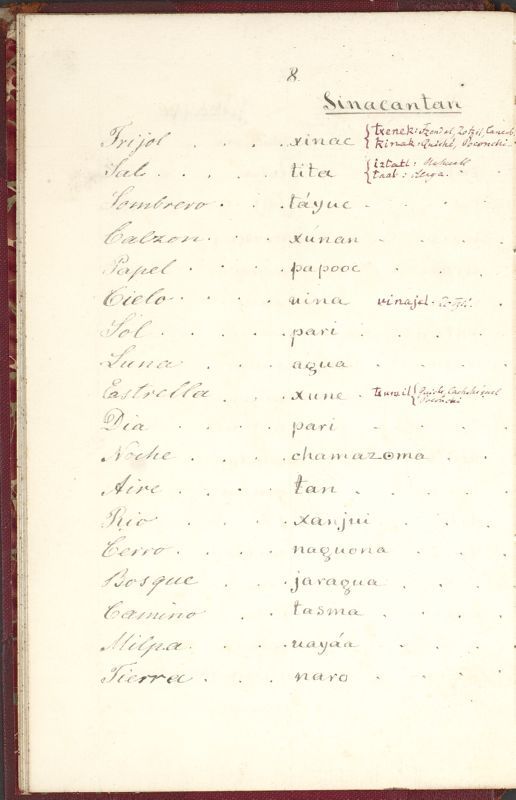 8.
Sinacantan
Frijol . . . . xinac { txenek: Tzendal, Zotzil, Chanab.
{ kinak: Quiché, Poconchi
Sal . . . . tita { iztatl: Nahuatl
{ taat: Lenga.
Sombrero . . . táyuc . .
Calzon . . . xúnan . .
Papel . . . papooc . .
Cielo . . . uina vinajel.
Sol . . . . pari . . .
Luna . . . . agua . . .
Estrella . . . xune . txumil { Quiché, Cachchiquel
Poconchi
Dia . . . . pari . . .
Noche . . . chamazoma . .
Aire . . . . tan . . .
Rio . . . . xanjui . . .
Cerro . . . . naguona . .
Bosque . . . jaragua . . .
Camino . . . tasma . . .
Milpa . . . uayáa . . .
Tierra . . . naro . . .